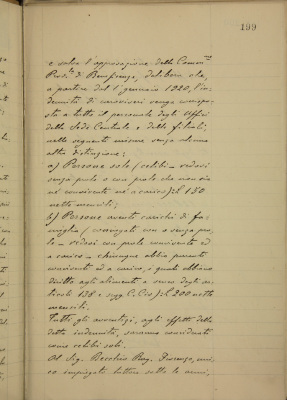 199
e salva l'approvazione della Comm.ne
Prov.le di Beneficenza, delibera che,
a partire dal 1° gennaio 1920, l'in-
dennità di caroviveri venga corrispo-
sta a tutto il personale degli Uffici
della Sede Centrale e delle filiali,
nelle seguenti misure senza alcuna
altra distinzione:
a) Persone sole (celibi - vedovi
senza prole o con prole che non sia
né convivente né a carico) £ 150
nette mensili;
b) Persone aventi carichi di fa-
miglia (coniugati con o senza pro-
le - vedovi con prole convivente ed
a carico - chiunque abbia parenti
conviventi ed a carico, i quali abbiano
diritto agli alimenti a senso degli ar-
ticoli 138 e segg. C. Civ.) £ 200 nette
mensili.
Tutti gli avventizi, agli effetti della
detta indennità, saranno considerati
come celibi soli.
Al Sig. Rag. uni-
co impiegato tuttora sotto le armi,